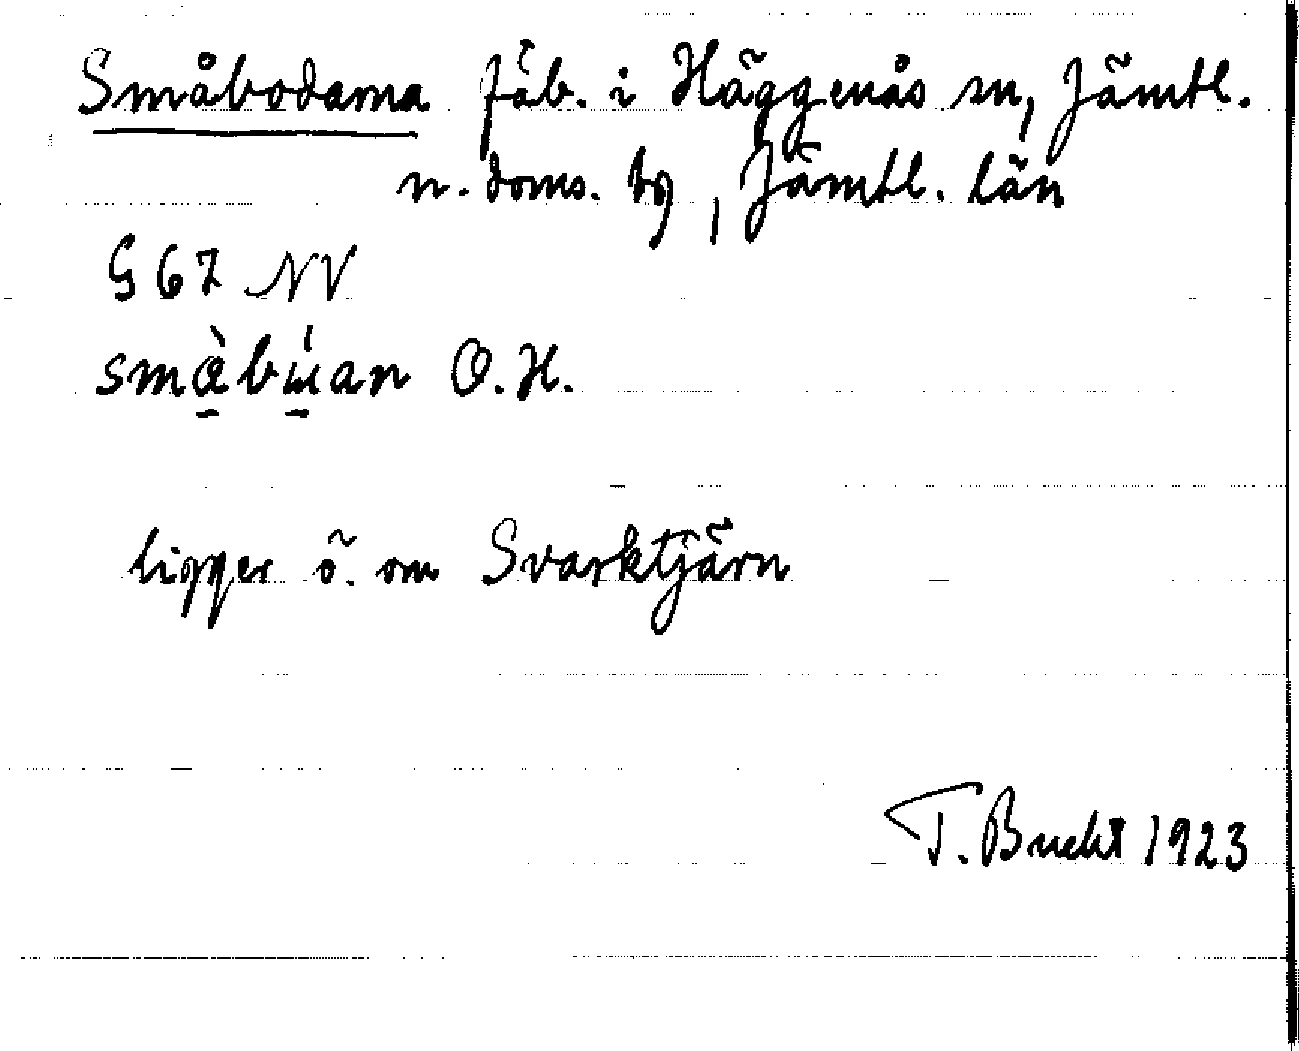 Småbodarna fäb. i Häggenås sn, Jämtl.
n. doms. tg, Jämtl. län
G 67 NV
småbu̇an O.H.
ligger ö. om Svarktjärn
T. Bucht 1923